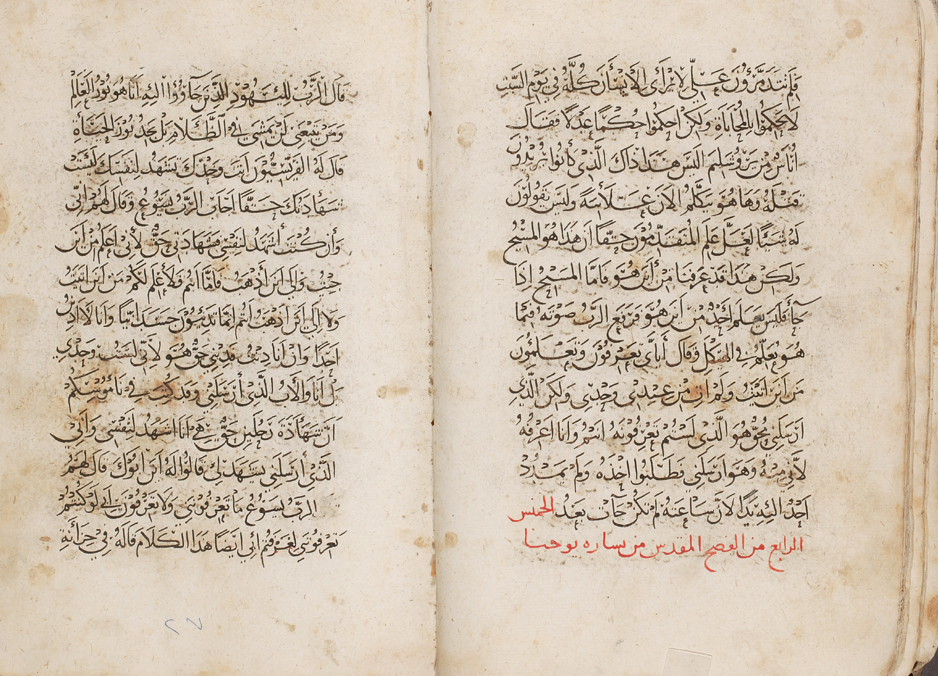 تتذمرون علي لابرأى الانسان كله في يوم السبت
لا تحكموا بالمحاباة ولكن احكموا حكما عدلا فقال
اناس من يروشليم اليس هذا ذاك الذي كانوا يريدون
قتله وها هو يتكلم الان علانية وليس يقولون
له شيا لعل علم المتقدمون حقا ان هذا هو المسيح
ولكن هذا قد عرفنا من اين هو فاما المسيح اذا
جآ فليس يعلم احد من اين هو فرفع الرب صوته فيما
هو يعلم في الهيكل وقال اياي تعرفون وتعلمون
من اين اتيت ولم ات من عندي وحدي ولكن الذي
ارسلني بحق هو الذي لستم تعرفونه انتم وانا اعرفه
لاني منه وهو ارسلني فطلبوا اخذه ولم يمدد
احد اليه يدا لان ساعته لم تكن جآت بعد الخميس
الرابع من الفصح المقدس من بشاره يوحنا
قال الرب لليهود الذين جاؤوا اليه انا هو نور العالم
ومن يتبعني لن يمشي في الظلام بل يجد نور الحياة
قال له الفريسيون انت وحدك تشهد لنفسك ليست
شهادتك حقا اجاب الرب يسوع وقال لهم اني
وان كنت اشهد لنفسي فشهادتي حق لاني اعلم من اين
جيت والى اين اذهب فاما انتم فلا علم لكم من اين اتيت
ولا الى اين اذهب انتم انما تدينون جسدانيا وانا لا ادين
احدا وان انا دنت فديني حق هو لاني لست وحدي
بل انا والاب الذي ارسلني وقد كتب في ناموسكم
ان شهادة رجلين حق هي انا اشهد لنفسي وابي
الذي ارسلني يشهد لي قالوا له اين ابوك قال لهم
الرب يسوع ما تعرفوني ولا تعرفون ابي لو كنتم
تعرفوني لعرفتم ابي ايضا هذا الكلام قاله في
٢٧